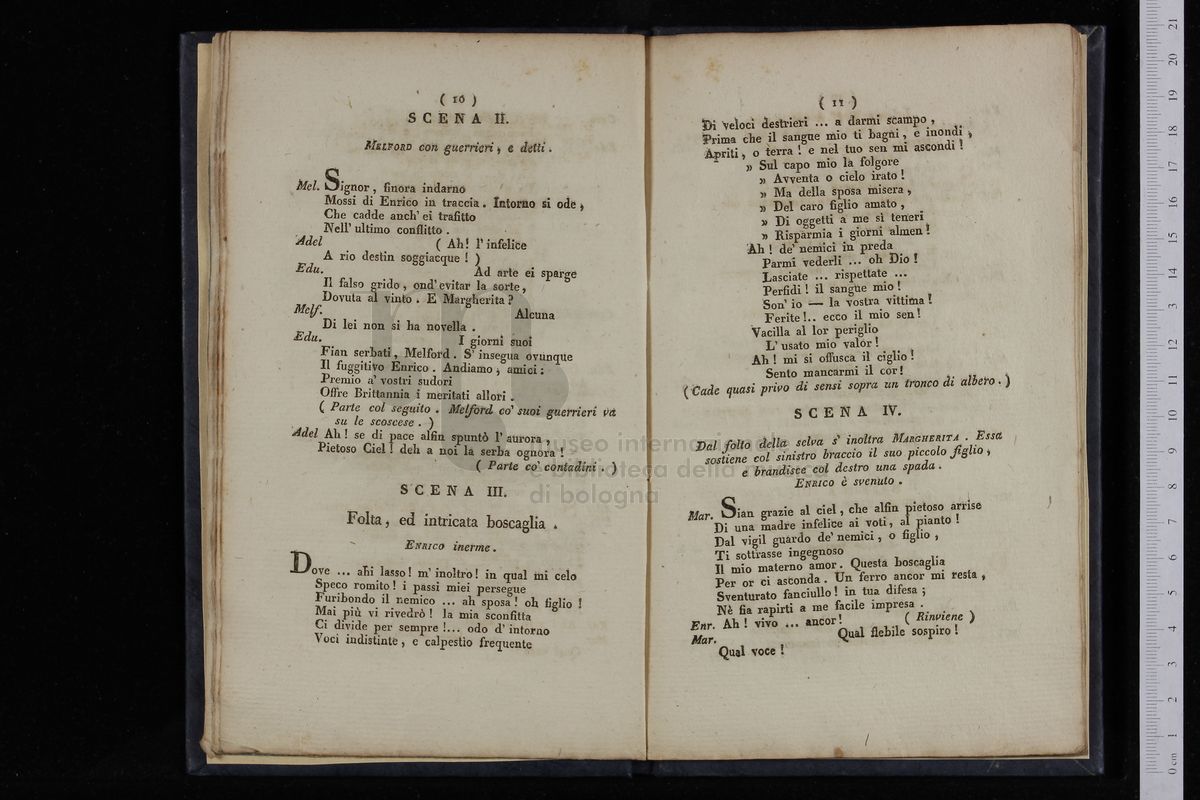 ( 10 )
SCENA II.
MELFORD con guerrieri, e detti.
Mel. Signor, finora indarno
Mossi di Enrico in traccia. Intorno si ode,
Che cadde anch' ei trafitto
Nell' ultimo conflitto.
Adel ( Ah! l' infelice
A rio destin soggiacque! )
Edu. Ad arte ei sparge
Il falso grido, ond' evitar la sorte,
Dovuta al vinto. E Margherita?
Melf. Alcuna
Di lei non si ha novella.
Edu. I giorni suoi
Fian serbati, Melford. S' insegua ovunque
Il fuggitivo Enrico. Andiamo, amici:
Premio a' vostri sudori
Offre Brittannia i meritati allori.
( Parte col seguito. Melford co' suoi guerrieri va
su le scoscese. )
Adel Ah! se di pace alfin spuntò l' aurora,
Pietoso Ciel! deh a noi la serba ognora!
( Parte co' contadini. )
SCENA III.
Folta, ed intricata boscaglia.
ENRICO inerme.
Dove ... ahi lasso! m' inoltro! in qual mi celo
Speco romito! i passi miei persegue
Furibondo il nemico ... ah sposa! oh figlio!
Mai più vi rivedrò! la mia sconfitta
Ci divide per sempre!... odo d' intorno
Voci indistinte, e calpestìo frequente
( 11 )
Di veloci destrieri ... a darmi scampo,
Prima che il sangue mio ti bagni, e inondi,
Apriti, o terra! e nel tuo sen mi ascondi!
» Sul capo mio la folgore
» Avventa o cielo irato!
» Ma della sposa misera,
» Del caro figlio amato,
» Di oggetti a me sì teneri
» Risparmia i giorni almen!
Ah! de' nemici in preda
Parmi vederli ... oh Dio!
Lasciate ... rispettate ...
Perfidi! il sangue mio!
Son' io — la vostra vittima!
Ferite!.. ecco il mio sen!
Vacilla al lor periglio
L' usato mio valor!
Ah! mi si offusca il ciglio!
Sento mancarmi il cor!
( Cade quasi privo di sensi sopra un tronco di albero. )
SCENA IV.
Dal folto della selva s' inoltra MARGHERITA. Essa
sostiene col sinistro braccio il suo piccolo figlio,
e brandisce col destro una spada.
ENRICO è svenuto.
Mar. Sian grazie al ciel, che alfin pietoso arrise
Di una madre infelice ai voti, al pianto!
Dal vigil guardo de' nemici, o figlio,
Ti sottrasse ingegnoso
Il mio materno amor. Questa boscaglia
Per or ci asconda. Un ferro ancor mi resta,
Sventurato fanciullo! in tua difesa;
Nè fia rapirti a me facile impresa.
Enr. Ah! vivo ... ancor! ( Rinviene )
Mar. Qual flebile sospiro!
Qual voce!
museo internazionale
e biblioteca della musica
di bologna
0 cm 1 2 3 4 5 6 7 8 9 10 11 12 13 14 15 16 17 18 19 20 21